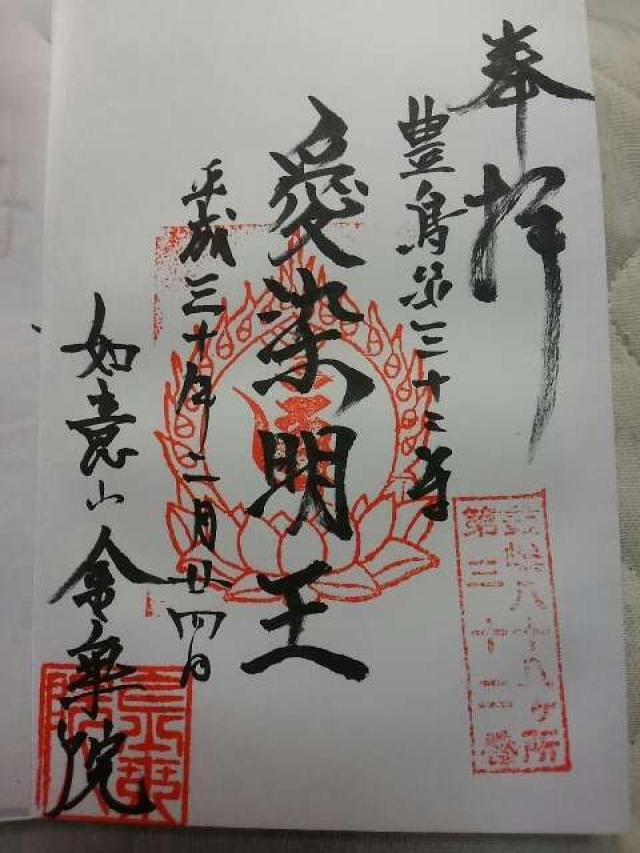 奉拝
豊島第三十二番
愛染明王
平成三十年二月廿四日
如意山金乗院
豊島八十八ヶ所
第三十二番